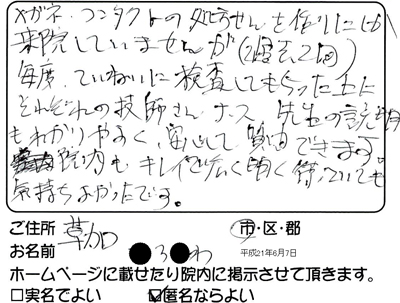 メガネ、コンタクトの処方せんを作りにしか
来院していませんが(過去2回)
毎度、ていねいに検査してもらった上に
それぞれの技師さん、ナース、先生の説明
もわかりやすく、安心して質問できます。
院内もキレイで広く明く待っていても
気持ちよかったです。
ご住所 草加 市・区・郡
お名前 ●ろ●わ 平成21年6月7日
ホームページに載せたり院内に掲示させて頂きます。
□実名でよい ☑匿名ならよい